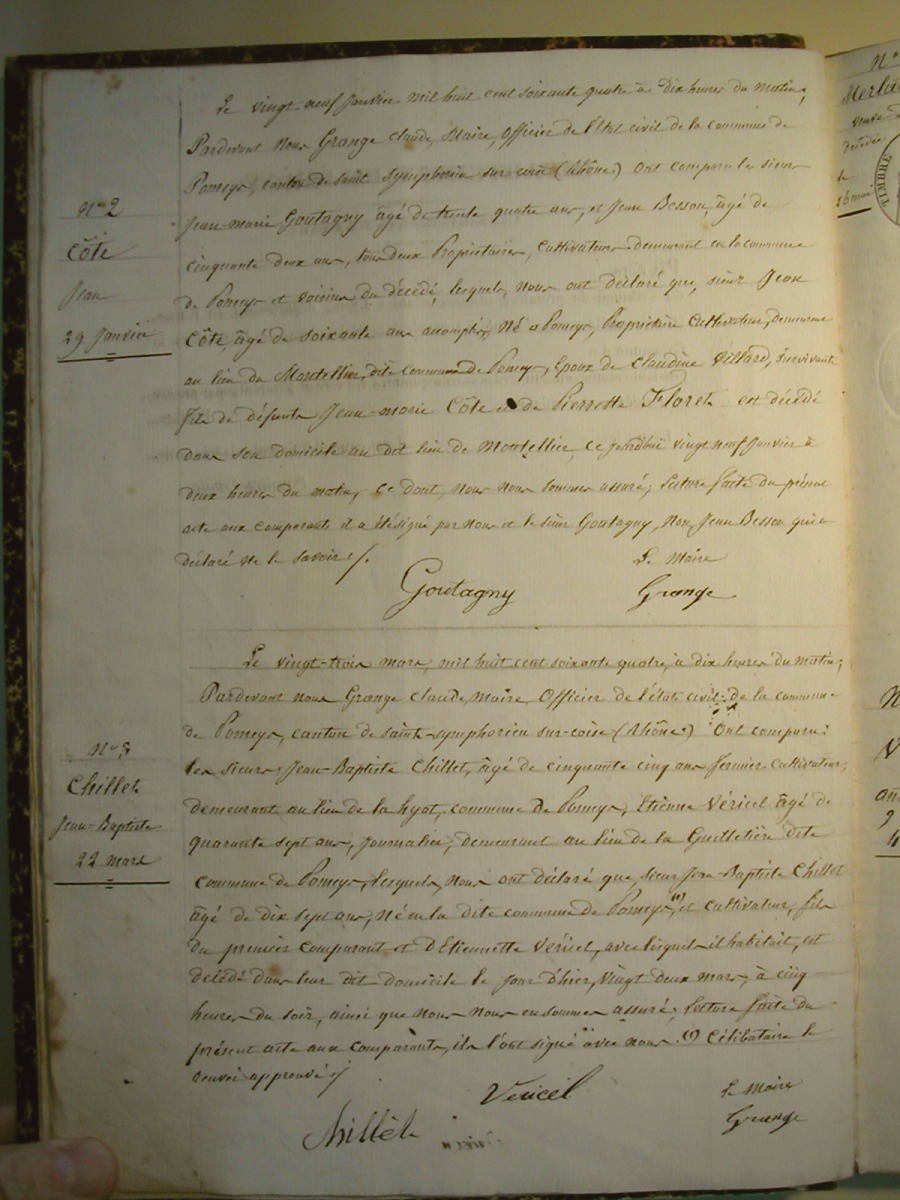 Le vingt neuf Janvier mil huit cent soixante quatre à dix heures du matin;
Pardevant Nous Grange Claude, Maire, Officier de l'Etat civil de la commune de
Pomeys, canton de saint symphorien sur coise (Rhône) Ont comparu les sieurs
Jean Marie Goutagny âgé de trente quatre ans, et Jean Besson, âgé de
cinquante deux ans, tous deux Propriétaires, Cultivateurs demeurant en la commune
de Pomeys et voisins du décédé, lesquels, nous ont déclaré que, sieur Jean
Côte, âgé de soixante ans accomplis, Né à Pomeys, Propriétaire Cultivateur, demeurant
au lieu du Montellier, dite commune de Pomeys, Epoux de Claudine Villard, survivante
fils de défunts Jean-marie Côte et de Pierrette Floret est décédé
dans son domicile au dit lieu de Montellier, ce jourdhui vingt neuf Janvier à
deux heures du matin, ce dont, nous nous sommes assuré; Lecture faite du présent
acte aux comparants il a été signé par nous et le sieur Goutagny, Non, Jean Besson qui a
déclaré ne le savoir ./.
Goutagny
Le Maire
Grange
N° 2
Côte
Jean
29 Janvier
Le vingt-trois mars, mil huit cent soixante quatre, à dix heures du matin;
Pardevant nous Grange Claude, Maire, Officier de l'état civil de la commune
de Pomeys, canton de saint-symphorien sur-coise (Rhône) Ont comparu:
les sieurs Jean-Baptiste Chillet, âgé de cinquante cinq ans fermier cultivateur,
demeurant au lieu de la hyot, commune de Pomeys, Etienne Véricel âgé de
quarante sept ans, Journalier, demeurant au lieu de la Guilletière dite
commune de Pomeys, lesquels, nous ont déclaré que, sieur Jean-Baptiste Chillet
âgé de dix sept ans, Né en la dite commune de Pomeys, (1) et Cultivateur, fils
du premier comparant et d'Etiennette Véricel, avec lesquels il habitait, est
décédé dans leur dit domicile le jour d'hier, vingt deux mars, à cinq
heures du soir, ainsi que nous nous en sommes assuré; Lecture faite du
présent acte aux comparants, ils l'ont signé avec nous. (1) Célibataire le
renvoi approuvé ./
Vericel
Chillet
Le Maire
Grange
N° 3
Chillet
Jean-Baptiste
22 mars
N°
veuve
décédée
le
26 mai
TIMBRE